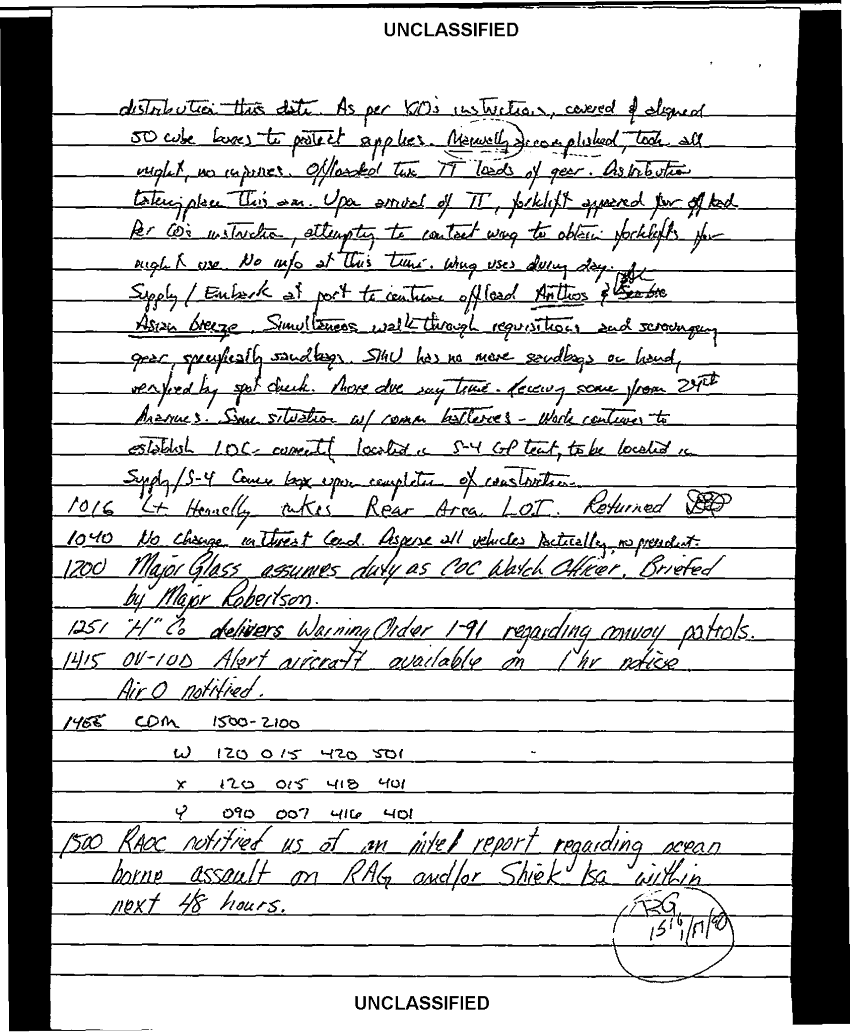 UNCLASSIFIED
distribution this date. As per XO's instructions, covered & aligned
50 cube boxes to protect supplies. Manually accomplished, took all
night, no injuries. Offloaded two TT loads of gear. Distribution
taking place this am. Upon arrival of TT, forklift appeared for offload
Per CO's instruction, attempting to contact wing to obtain forklifts for
night use. No info at this time. Wing uses during day.
Supply / Embark at port to continue offload Anthos &
Asian breeze. Simultaneos walk through requisitions and scrounging
gear, specifically sandbags. SMU has no more sandbags on hand,
verified by spot check. More due any time. Receiving some from 24th
Marines. Same situation w/ comm batteries - Work continues to
establish LOC - currently located in S-4 GP tent, to be located in
Supply/S-4 Conex box upon completion of construction.
1016 Lt Hennelly takes Rear Area LOI. Returned
1040 No change in threat Cond. Disperse all vehicles tactically, no precedent.
1200 Major Glass assumes duty as COC Watch Officer. Briefed
by Major Robertson.
1251 "H" Co delivers Warning Order 1-91 regarding convoy patrols.
1415 OV-10D Alert aircraft available on 1 hr notice
Air O notified.
CDM 1500-2100
W 120 015 420 501
X 120 015 418 401
Y 090 007 416 401
1500 RAOC notified us of an intel report regarding ocean
borne assault on RAG and/or Shiek Isa within
next 48 hours.
RG
UNCLASSIFIED